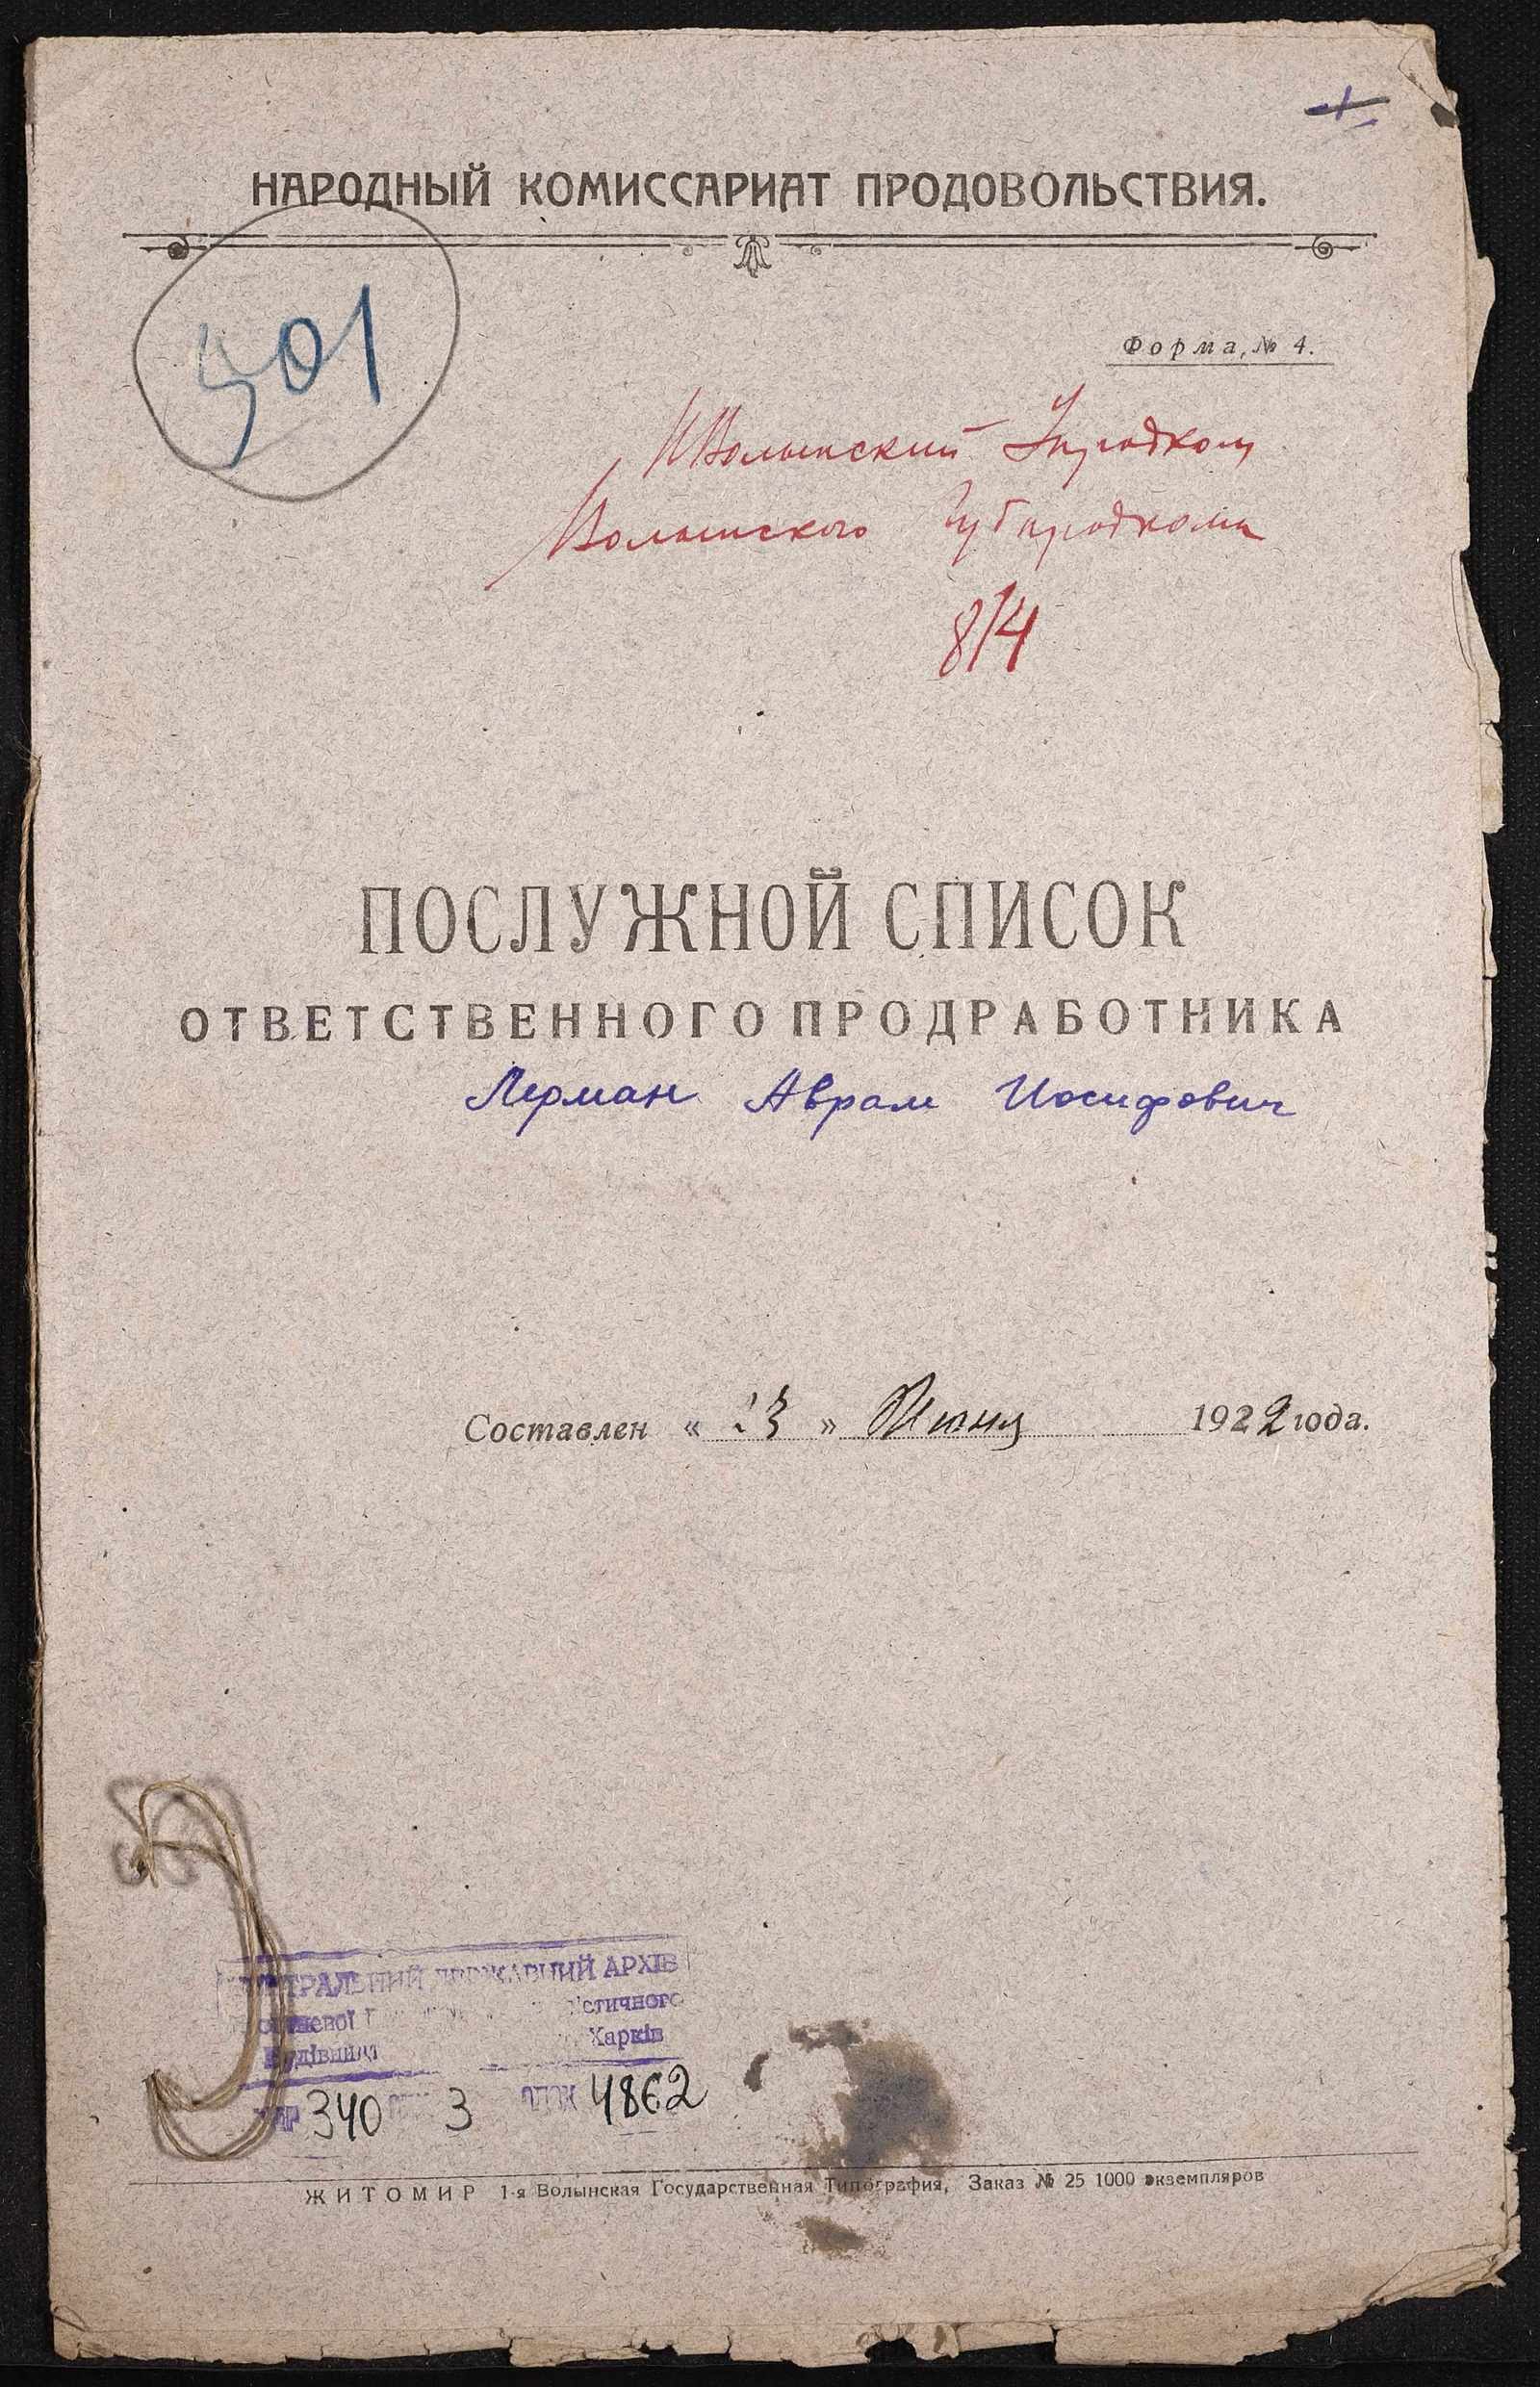 НАРОДНЫЙ КОМИССАРИАТ ПРОДОВОЛЬСТВИЯ.
501
Форма, № 4.
Волынский Упродком
Волынского Губпродкома
8/4
ПОСЛУЖНОЙ СПИСОК
ОТВЕТСТВЕННОГО ПРОДРАБОТНИКА
Лерман Аврам Иосифович
Составлен « 23 » Июня 1922 года.
ДЕРЖАВНИЙ АРХІВ
Харків
340 3 4862
ЖИТОМИР 1-я Волынская Государственная Типография, Заказ № 25 1000 экземпляров